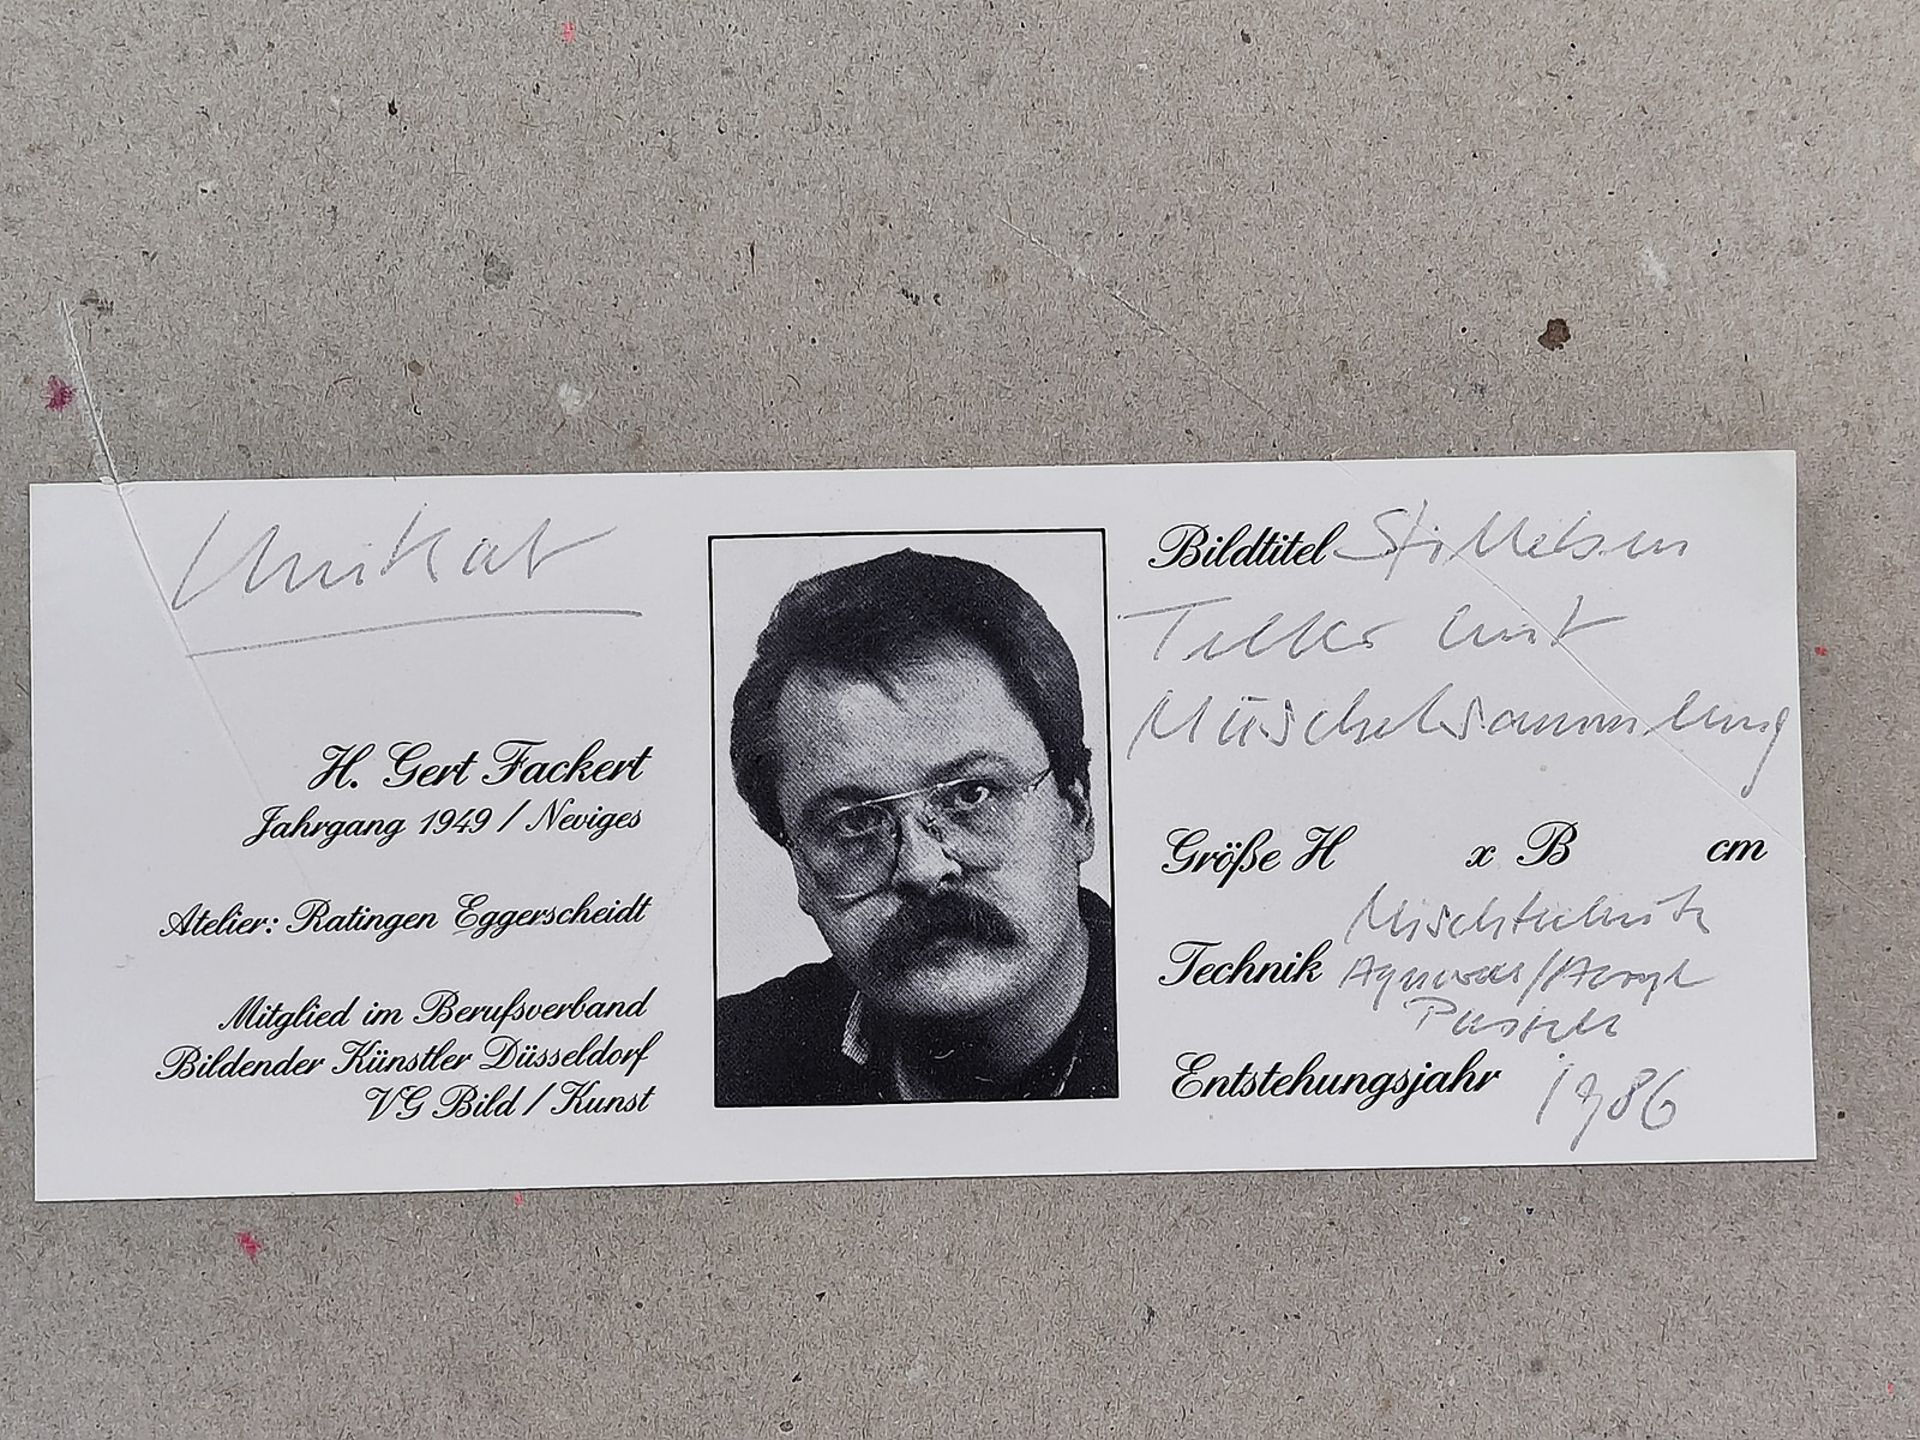 Unikat
H. Gert Fackert
Jahrgang 1949 / Neviges
Atelier: Ratingen Eggerscheidt
Mitglied im Berufsverband
Bildender Künstler Düsseldorf
VG Bild / Kunst
Bildtitel Stilleben
Teller mit
Muschelsammlung
Größe H x B cm
Mischtechnik
Technik Aquarell/Acryl
Pastell
Entstehungsjahr 1986